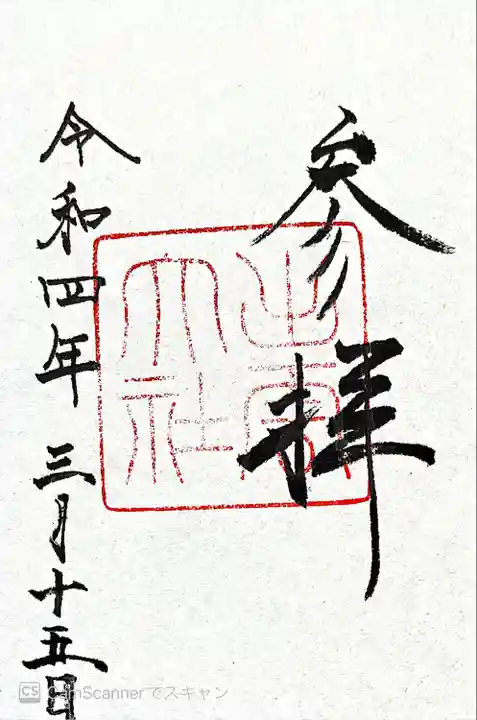 参拝
出雲
大社
令和四年 三月十五日
CS CamScannerでスキャン